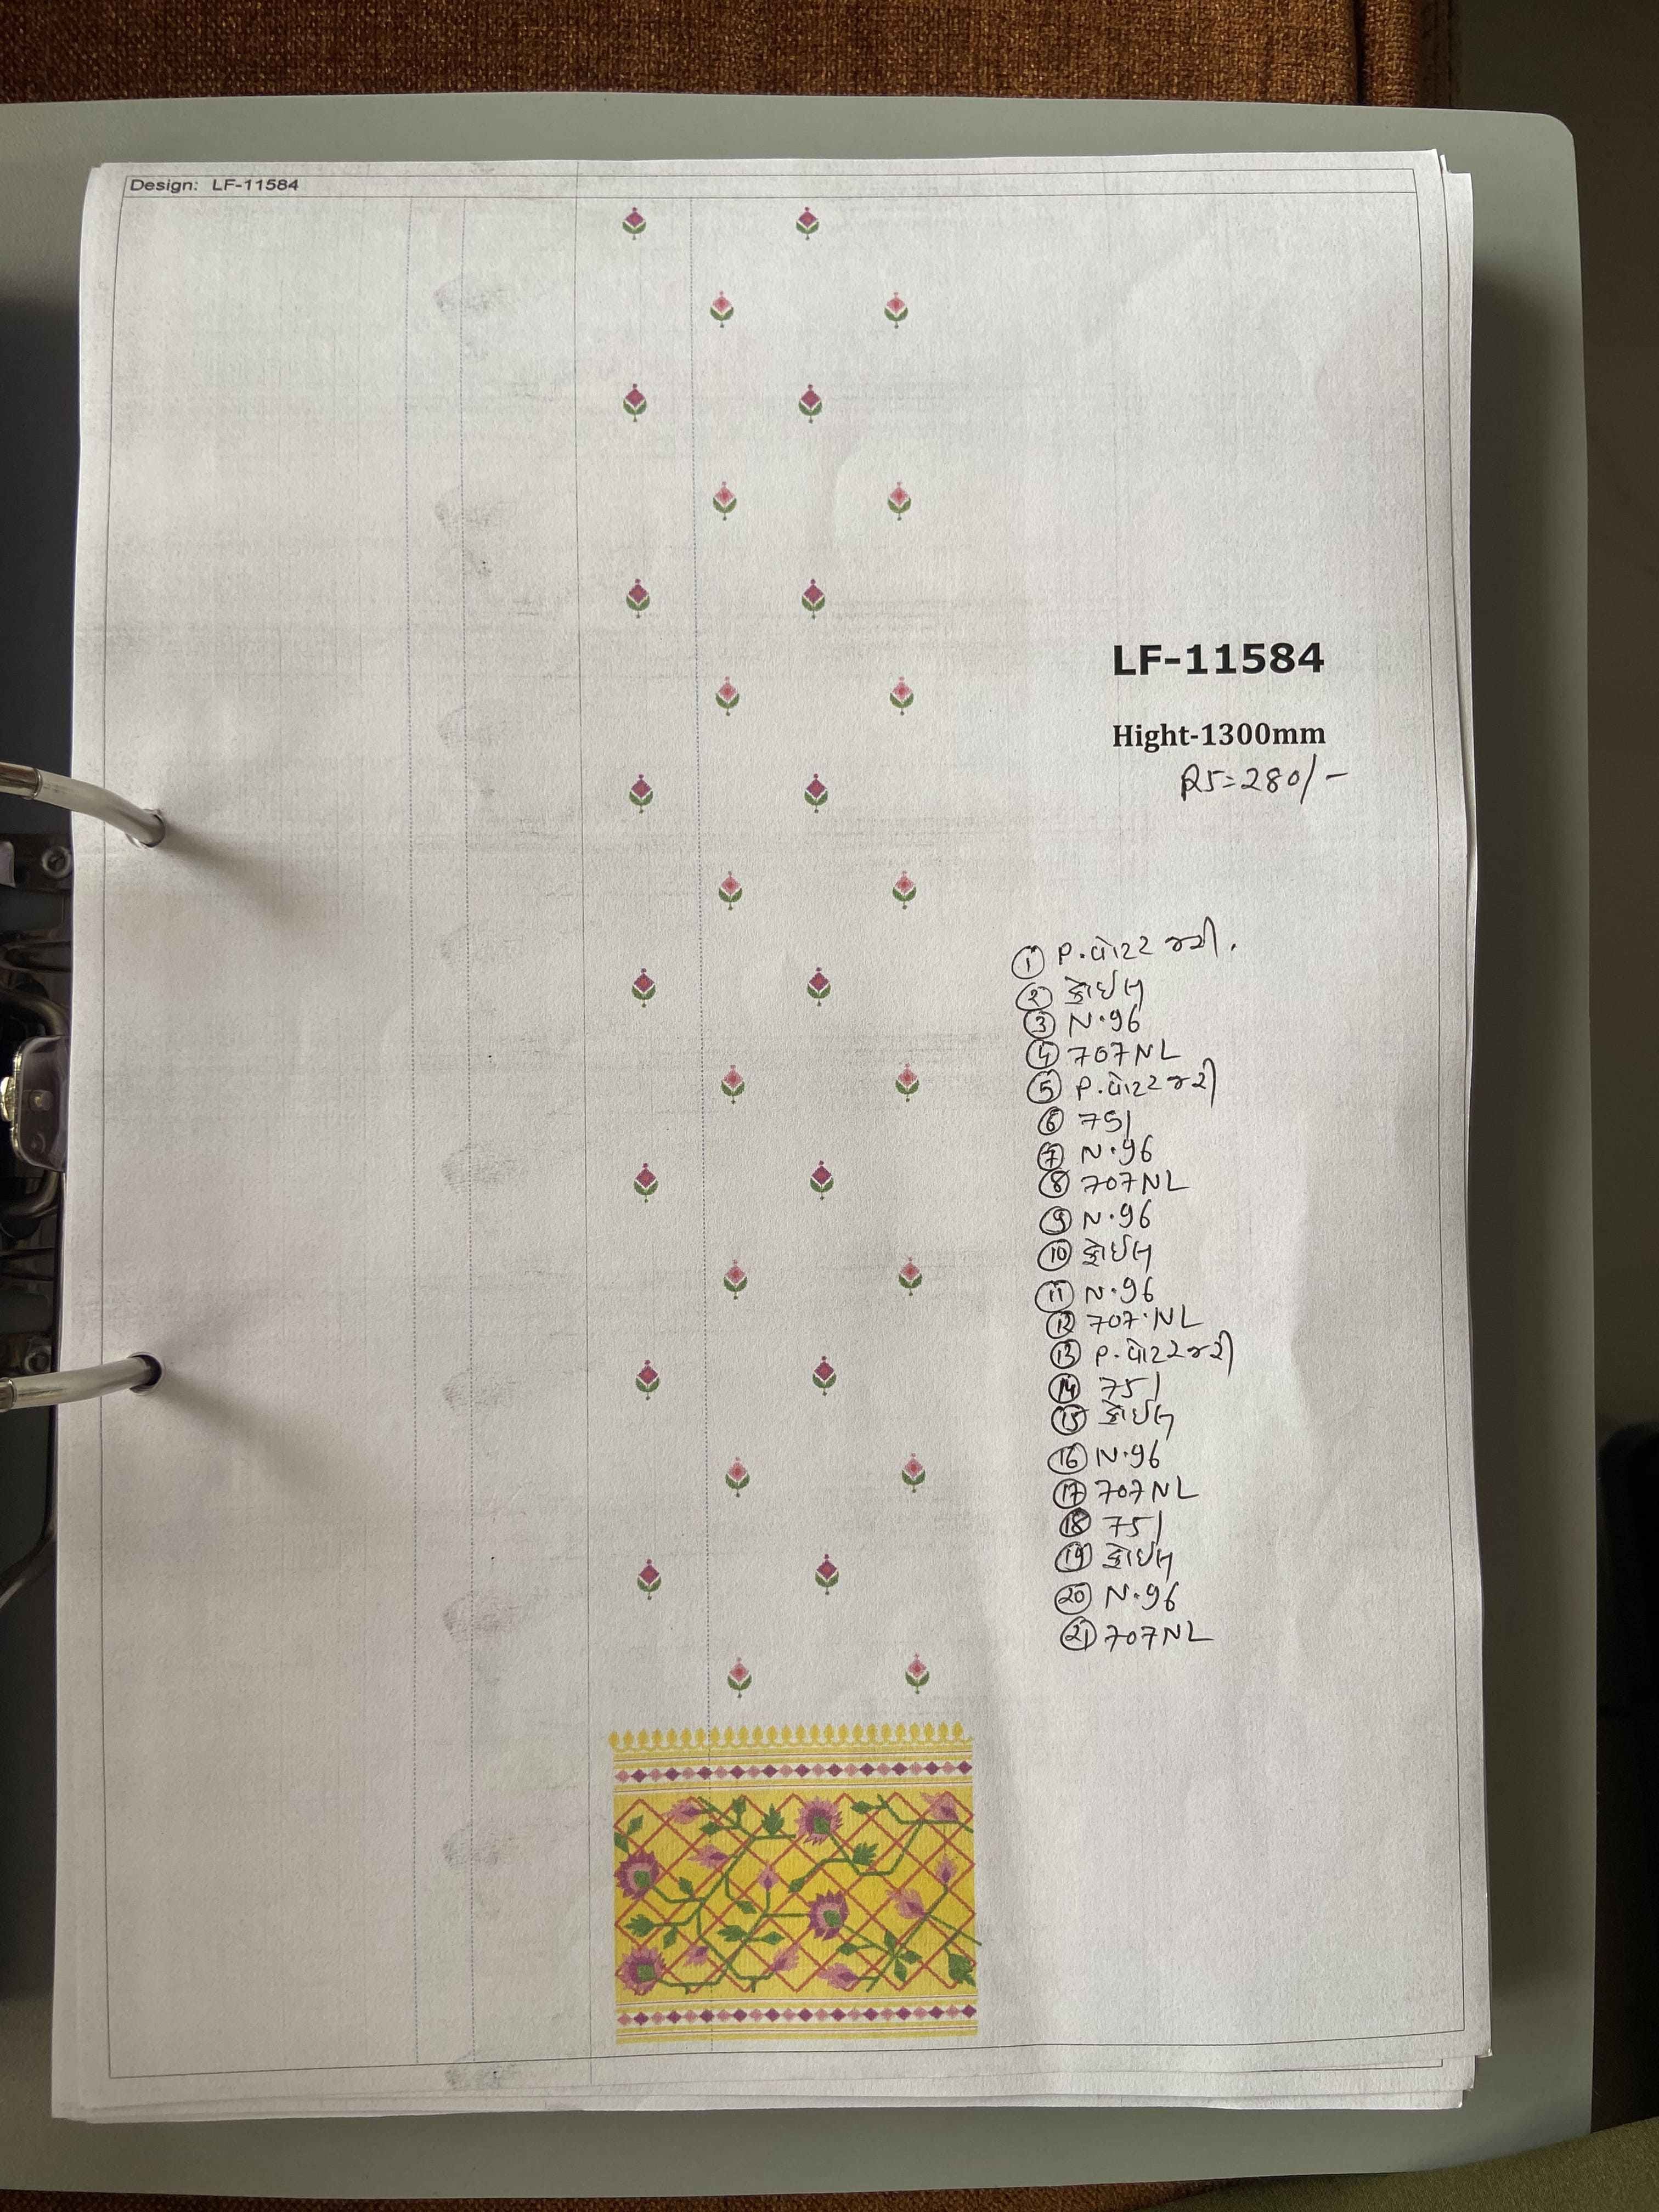 Design: LF-11584
LF-11584
Hight-1300mm
RS=280/-
① P.વોટર જરી.
② ફોઈલ
③ N.96
④ 707NL
⑤ P.વોટર જરી
⑥ 751
⑦ N.96
⑧ 707NL
⑨ N.96
⑩ ફોઈલ
⑪ N.96
⑫ 707.NL
⑬ P.વોટર જરી
⑭ 751
⑮ ફોઈલ
⑯ N.96
⑰ 707NL
⑱ 751
⑲ ફોઈલ
⑳ N.96
㉑ 707NL